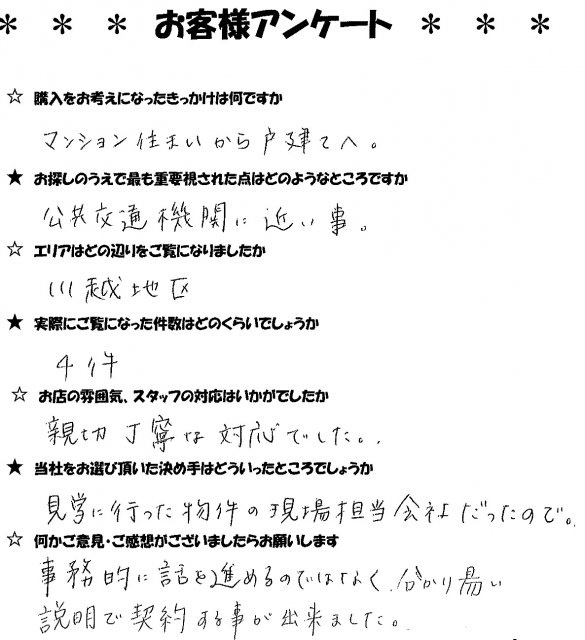 * * * お客様アンケート * * *
☆ 購入をお考えになったきっかけは何ですか
マンション住まいから戸建てへ。
★ お探しのうえで最も重要視された点はどのようなところですか
公共交通機関に近い事。
☆ エリアはどの辺りをご覧になりましたか
川越地区
★ 実際にご覧になった件数はどのくらいでしょうか
4件
☆ お店の雰囲気、スタッフの対応はいかがでしたか
親切丁寧な対応でした。
★ 当社をお選び頂いた決め手はどういったところでしょうか
見学に行った物件の現場担当会社だったので。
☆ 何かご意見・ご感想がございましたらお願いします
事務的に話を進めるのではなく、分かり易い
説明で契約する事が出来ました。